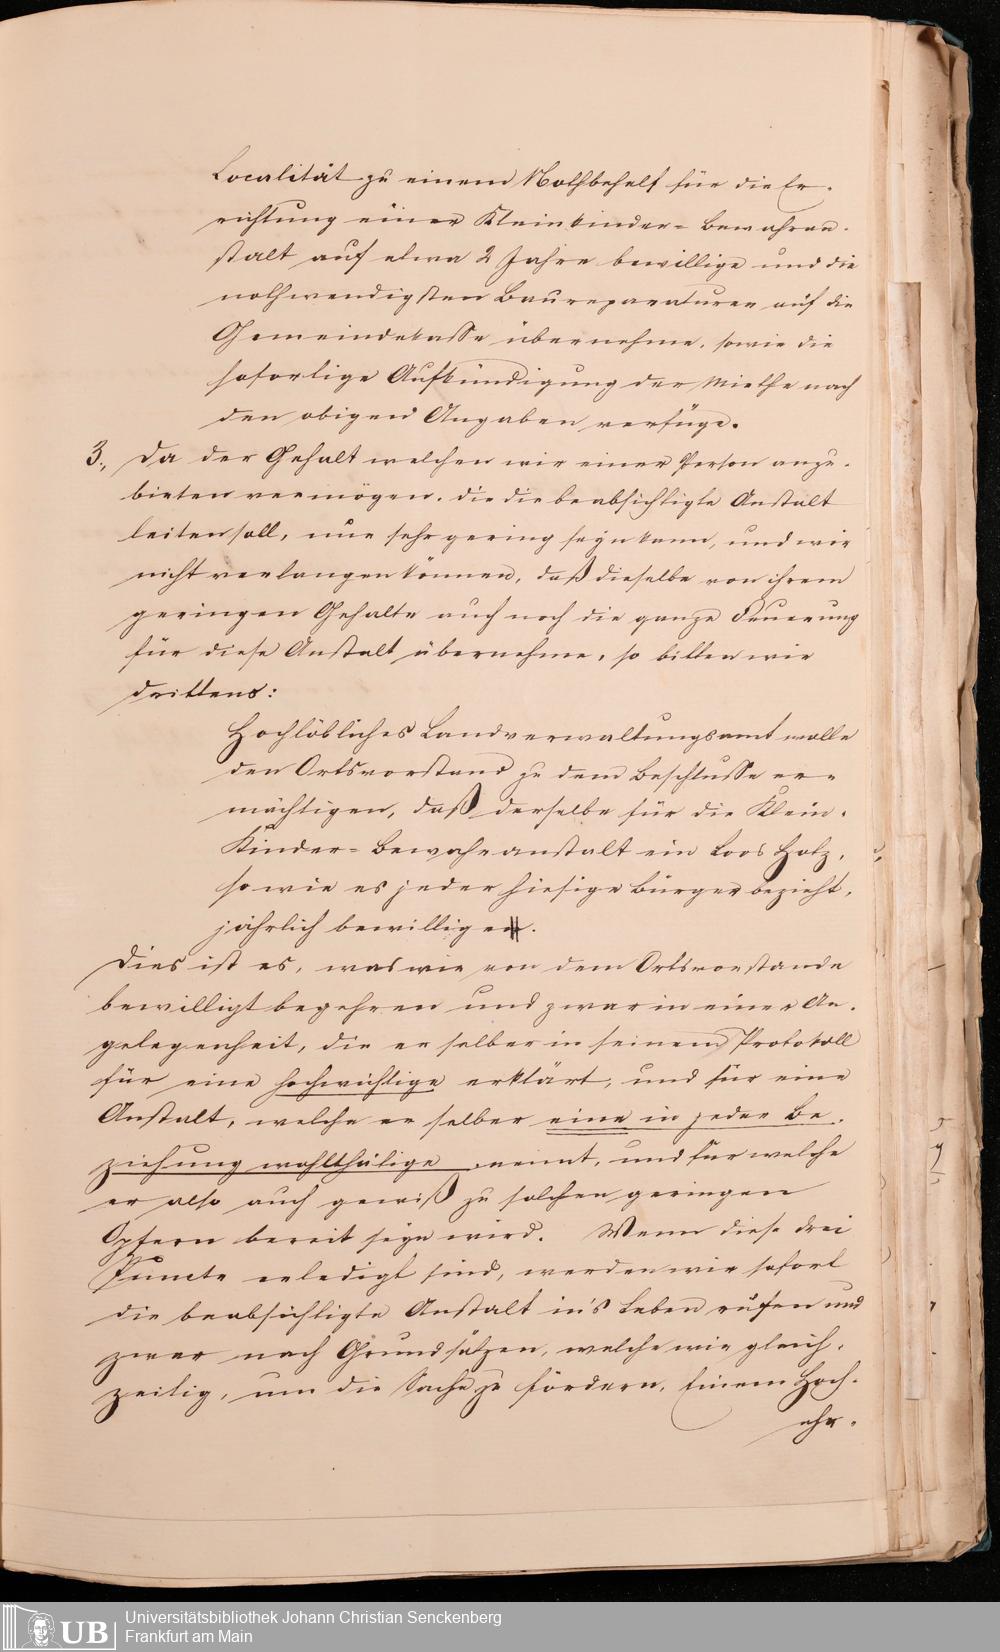 Localität zu einem Nothbehelf für die Er-
richtung einer Kleinkinder-Bewahran-
stalt auf etwa 2 Jahre bewillige und die
nothwendigsten Baureparaturen auf die
Gemeindekasse übernehme, sowie die
sofortige Aufkündigung der Miethe nach
den obigen Angaben verfüge.
3., Da der Gehalt welchen wir einer Person anzu-
bieten vermögen, die die beabsichtigte Anstalt
leiten soll, nur sehr gering seyn kann, und wir
nicht verlangen können, daß dieselbe von ihrem
geringen Gehalte auch noch die ganze Feuerung
für diese Anstalt übernehme, so bitten wir
drittens:
Hochlöbliches Landverwaltungsamt wolle
den Ortsvorstand zu dem Beschlusse er-
mächtigen, daß derselbe für die Klein-
Kinder-Bewahranstalt ein Loos Holz,
so wie es jeder hiesige Bürger bezieht,
jährlich bewillige.
Dies ist es, was wir von dem Ortsvorstande
bewilligt begehren und zwar in einer An-
gelegenheit, die er selber in seinem Protokoll
für eine hochwichtige erklärt, und für eine
Anstalt, welche er selber eine in jeder Be-
ziehung wohlthätige nennt, und für welche
er also auch gewiß zu solchen geringen
Opfern bereit seyn wird. Wenn diese drei
Puncte erledigt sind, werden wir sofort
die beabsichtigte Anstalt in's Leben rufen und
zwar nach Grundsätzen, welche wir gleich-
zeitig, um die Sache zu fördern, Einem Hoch-
ehr-
Universitätsbibliothek Johann Christian Senckenberg
Frankfurt am Main
UB